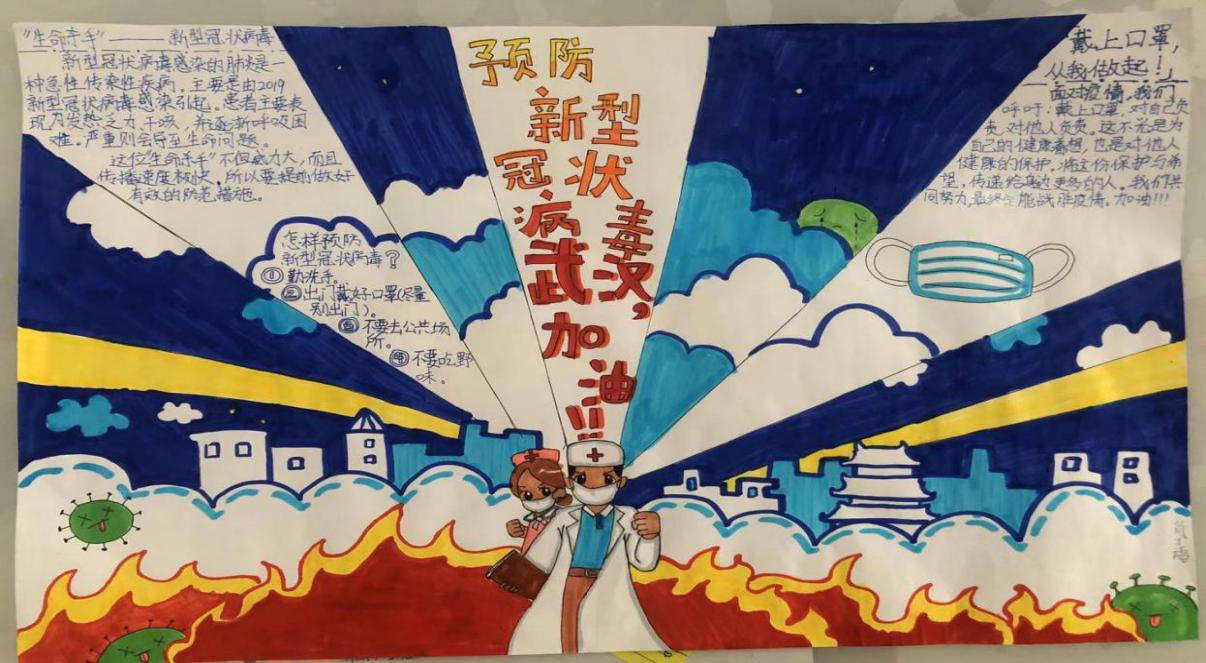 "生命杀手"——新型冠状病毒
新型冠状病毒感染的肺炎是一
种急性传染性疾病。主要是由2019
新型冠状病毒感染引起。患者主要表
现为发热、乏力、干咳，并逐渐呼吸困
难。严重则会导至生命问题。
这位"生命杀手"不但威力大，而且
传播速度极快，所以要提前做好
有效的防范措施。
怎样预防
新型冠状病毒？
①勤洗手。
②出门戴好口罩(尽量
别出门)。
③不要去公共场
所。
④不要吃野
味。
预防
新型
冠状
病毒
武汉，
加油!!!
戴上口罩，
从我做起！
面对疫情，我们
呼吁：戴上口罩，对自己负
责，对他人负责。这不光是为
自己的健康着想，也是对他人
健康的保护，将这份保护与希
望，传递给身边更多的人。我们共
同努力，最终定能战胜疫情。加油!!!